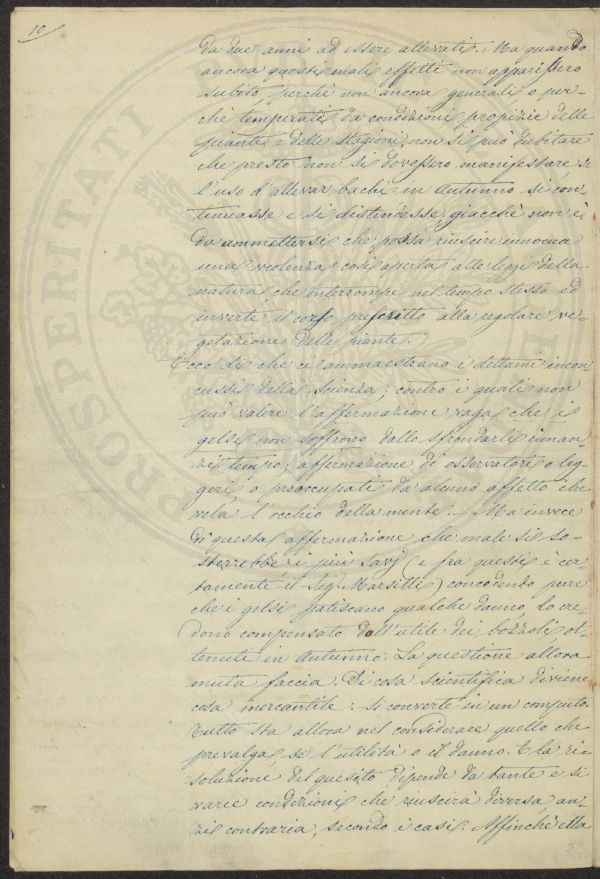 10
da due anni ad essere allevati. Ma quando
ancora questi mali effetti non apparissero
subito, perchè non ancora generali, o per-
chè temperati da condizioni propizie delle
piante e delle stagioni, non si può dubitare
che presto non si dovessero manifestare se
l'uso d'allevar bachi in Autunno si con-
tinuasse e si distendesse, giacchè non è
da ammettersi che possa riuscire innocua
una violenza così aperta alle leggi della
natura che interrompe nel tempo stesso ed
inverte il corso prescritto alla regolare ve-
getazione delle piante.
Ecco di che ci ammaestrano i dettami incon
cussi della scienza; contro i quali non
può valere l'affermazione vaga che i
gelsi non soffrono dallo sfrondarli innan
zi tempo; affermazione di osservatori o leg-
geri o preoccupati da alcuno affetto che
vela l'occhio della mente. — Ma invece
di questa affermazione che male si so-
sterrebbe i più savj (e fra questi è cer-
tamente il Sig. Marsilli) concedendo pure
che i gelsi patiscano qualche danno, lo cre
dono compensato dall'utile dei bozzoli ot-
tenuti in Autunno. La questione allora
muta faccia. Di cosa scientifica diviene
cosa mercantile: si converte in un computo.
Tutto sta allora nel considerare quello che
prevalga, se l'utilità o il danno. E la ri-
soluzione del quesito dipende da tante e sì
varie condizioni che riuscirà diversa an-
zi contraria, secondo i casi. Affinchè ella
PROSPERITATI